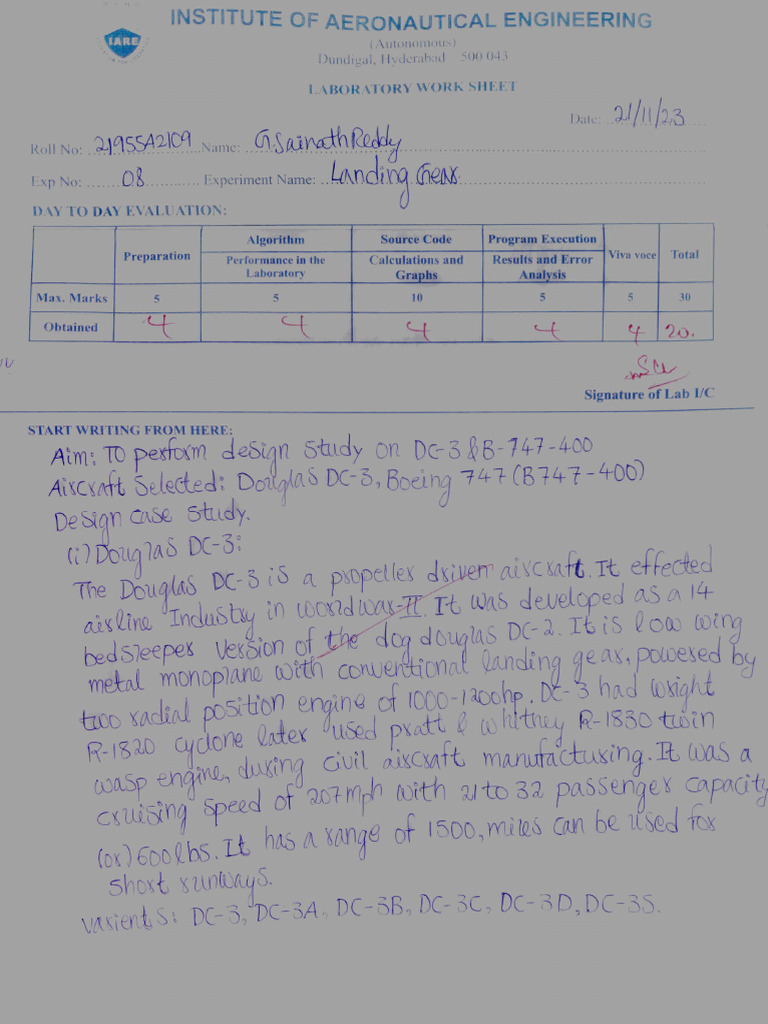 IARE
INSTITUTE OF AERONAUTICAL ENGINEERING
(Autonomous)
Dundigal, Hyderabad 500 043
LABORATORY WORK SHEET
Date: 21/11/23
Roll No: 21955A2109 Name: G.Sainath Reddy
Exp No: 08 Experiment Name: Landing Gear
DAY TO DAY EVALUATION:
Preparation Algorithm Source Code Program Execution Viva voce Total
Performance in the Laboratory Calculations and Graphs Results and Error Analysis
Max. Marks 5 5 10 5 5 30
Obtained 4 4 4 4 4 20.
Signature of Lab I/C
START WRITING FROM HERE:
Aim: To perform design study on DC-3 & B-747-400
Aircraft Selected: Douglas DC-3, Boeing 747 (B747-400)
Design case study.
(i) Douglas DC-3:
The Douglas DC-3 is a propeller driven aircraft. It effected
airline Industry in world war-II. It was developed as a 14
bedsleeper version of the dog douglas DC-2. It is low wing
metal monoplane with conventional landing gear, powered by
two radial position engine of 1000-1200hp. DC-3 had wright
R-1820 cyclone later used pratt & whitney R-1830 twin
wasp engine, during civil aircraft manufacturing. It was a
cruising speed of 207mph with 21 to 32 passenger capacity
(or) 600lbs. It has a range of 1500, miles can be used for
short runways.
varients: DC-3, DC-3A, DC-3B, DC-3C, DC-3D, DC-3S.